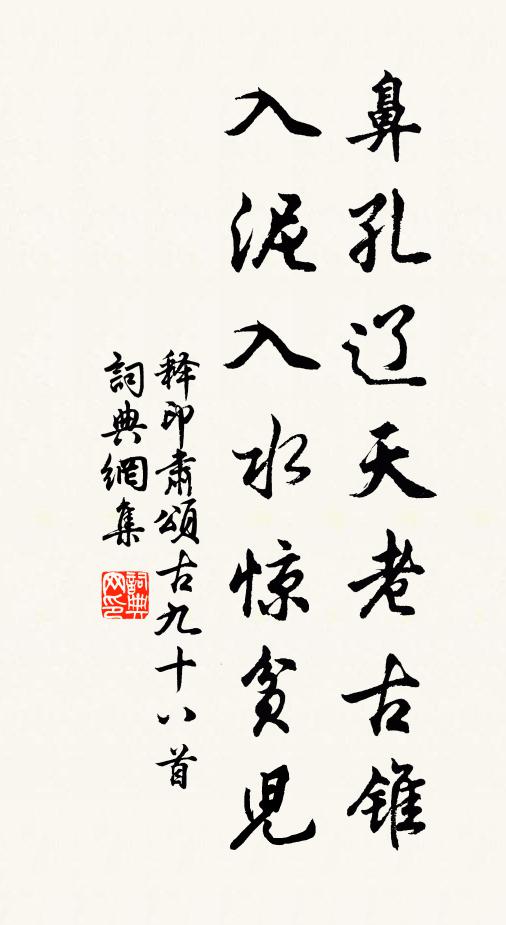 鼻孔辽天老古锥
入泥入水惊贫児
释印肃頌古九十八首
詞典網集
詞典网印